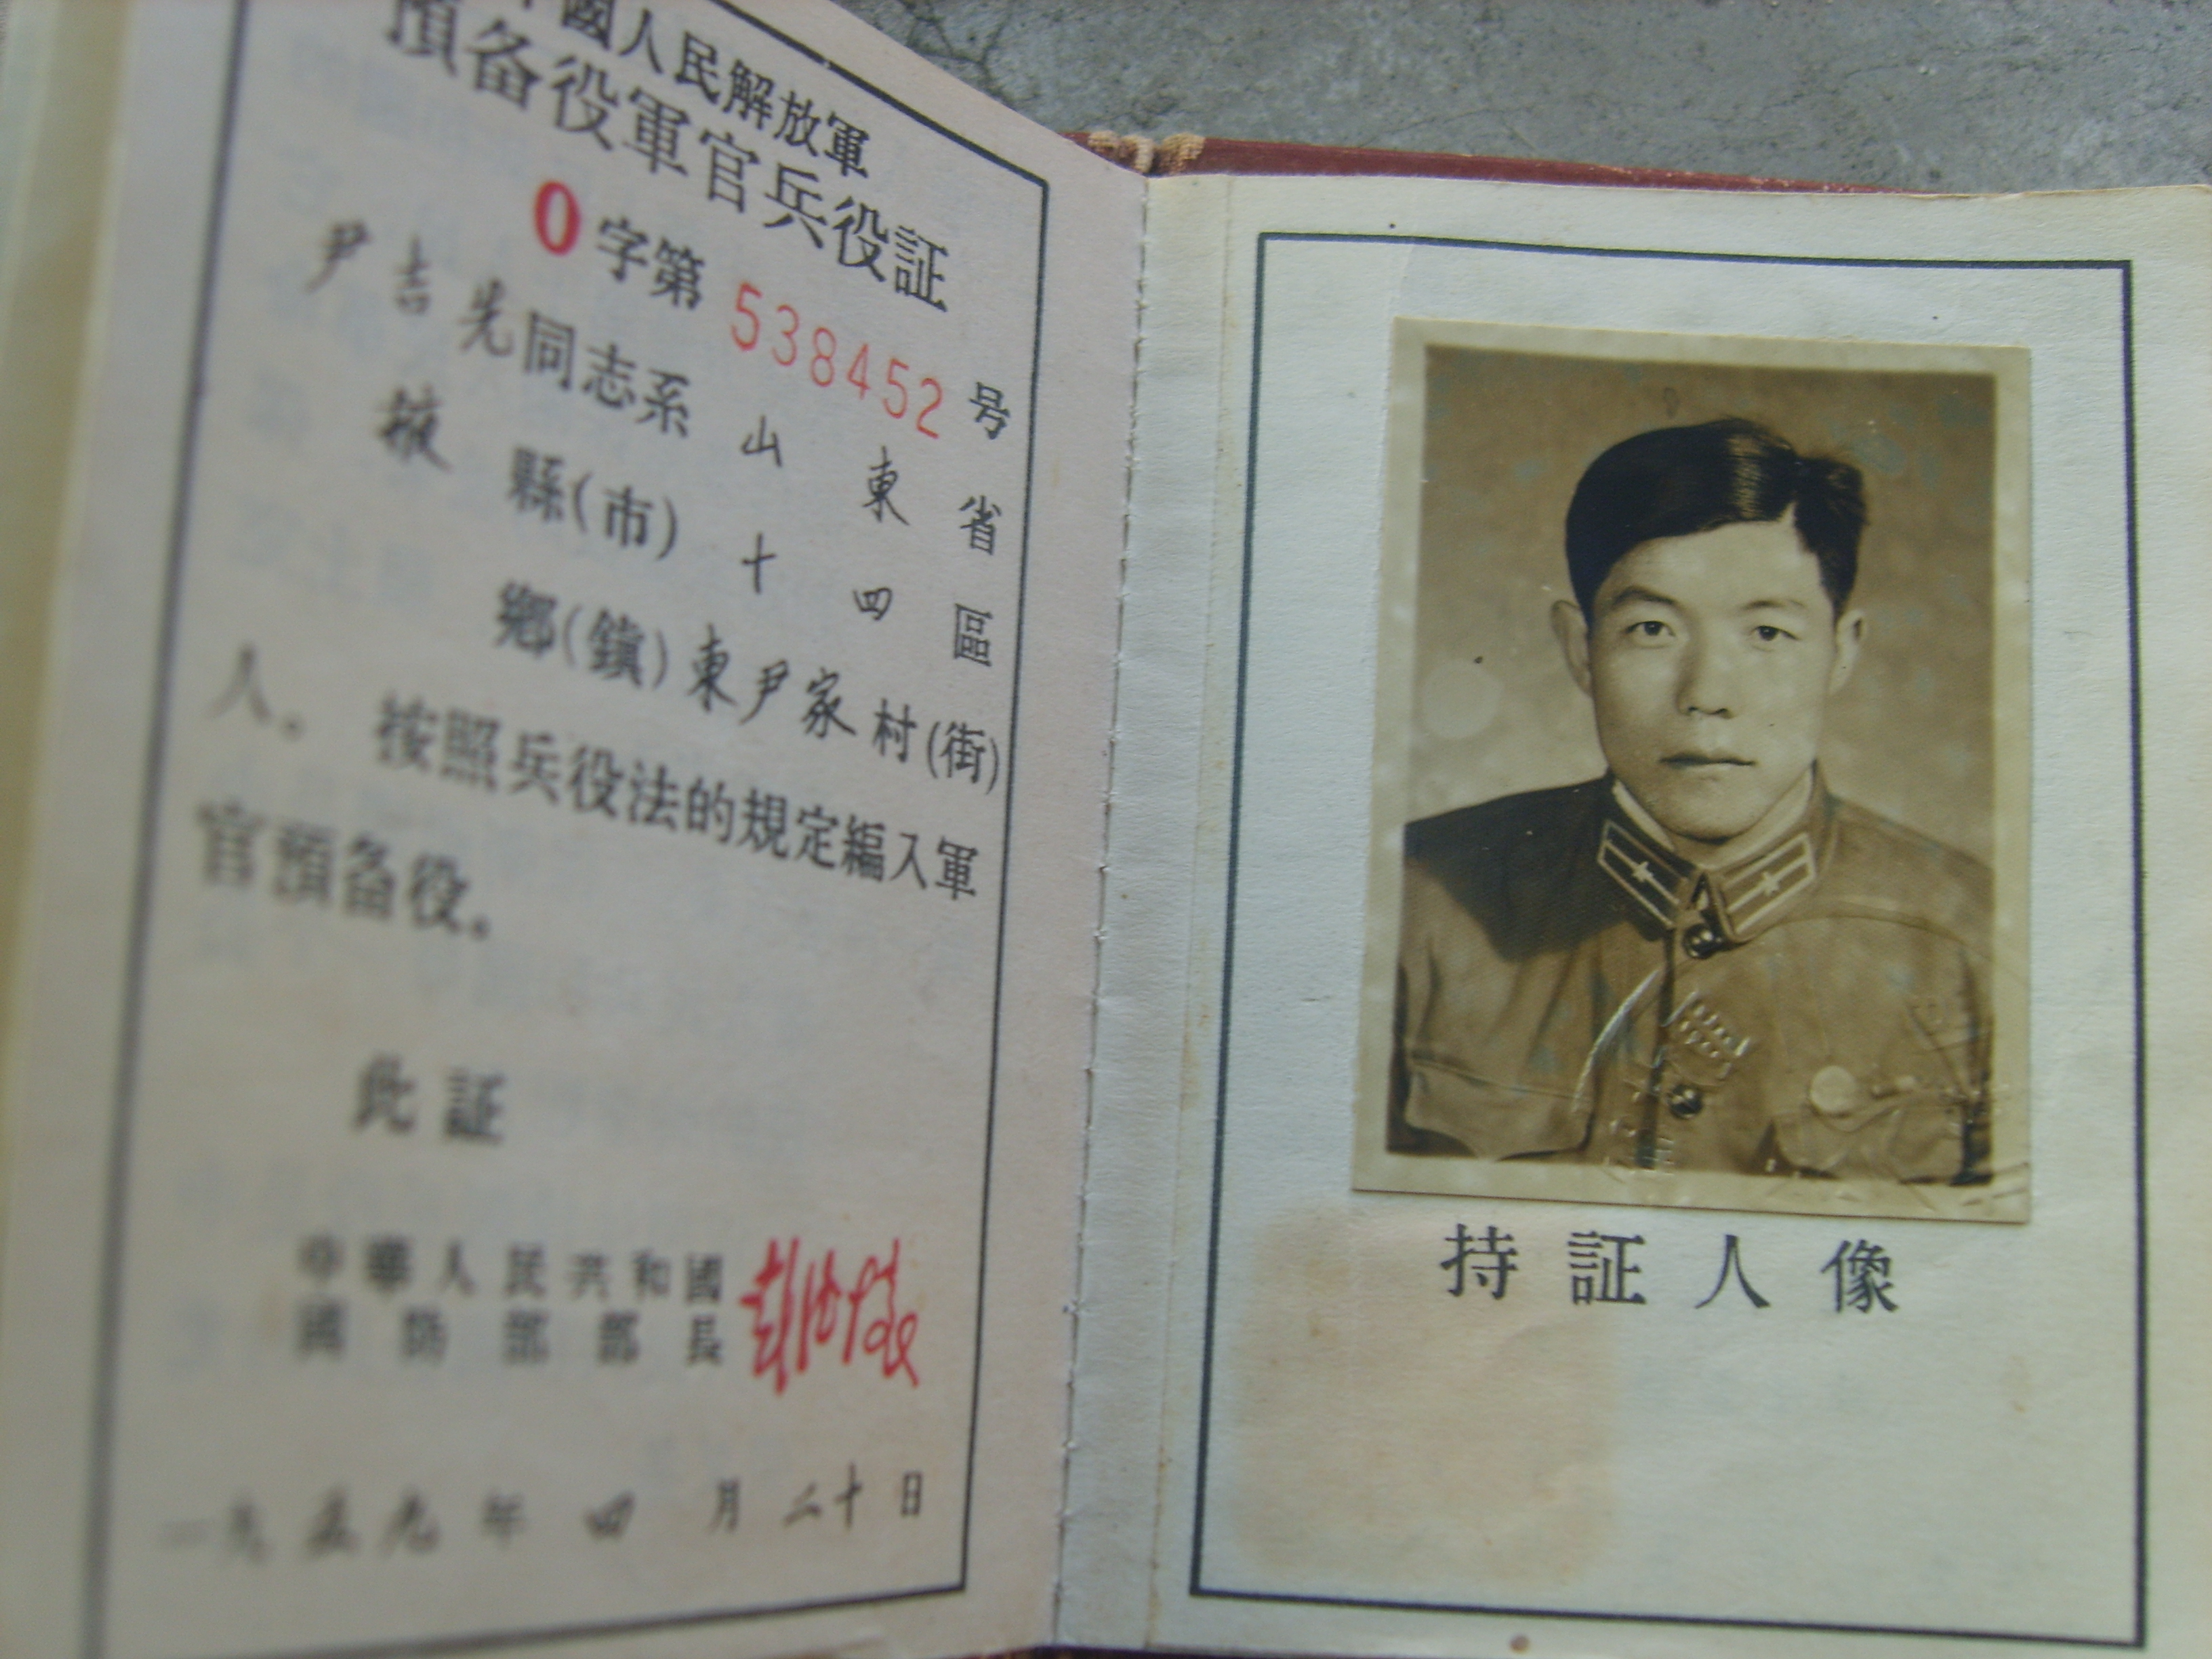 中國人民解放軍
預备役軍官兵役証
0字第538452号
尹吉先同志系山東省
掖縣(市)十四區
鄉(鎮)東尹家村(街)
人。按照兵役法的規定編入軍
官預备役。
此証
中華人民共和國
國防部部長
彭德懷
一九五九年四月二十日
持証人像